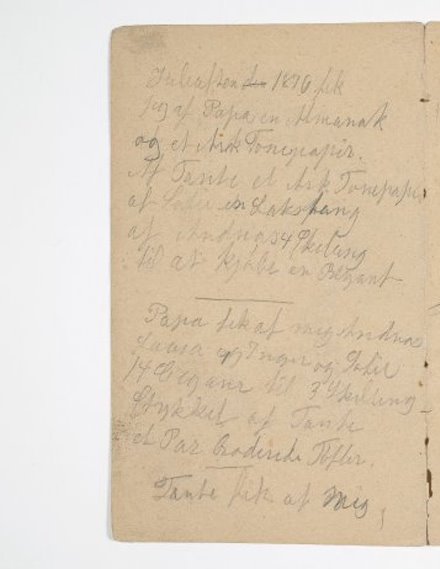 Juleaften den 1870 fik
jeg af Papa en Almanak
og et Ark Tonepapir.
Af Tante et Ark Tonepapir
af Sofie en Lakstang
af Andreas 4 Skilling
til at Kjøbe en
Papa fik af mig Andreas
Laura og Inger og Sofie
14 Cigarer til 3 Skilling
Stykket af Tante
et Par Broderede Tøfler.
Tante fik af Mig,